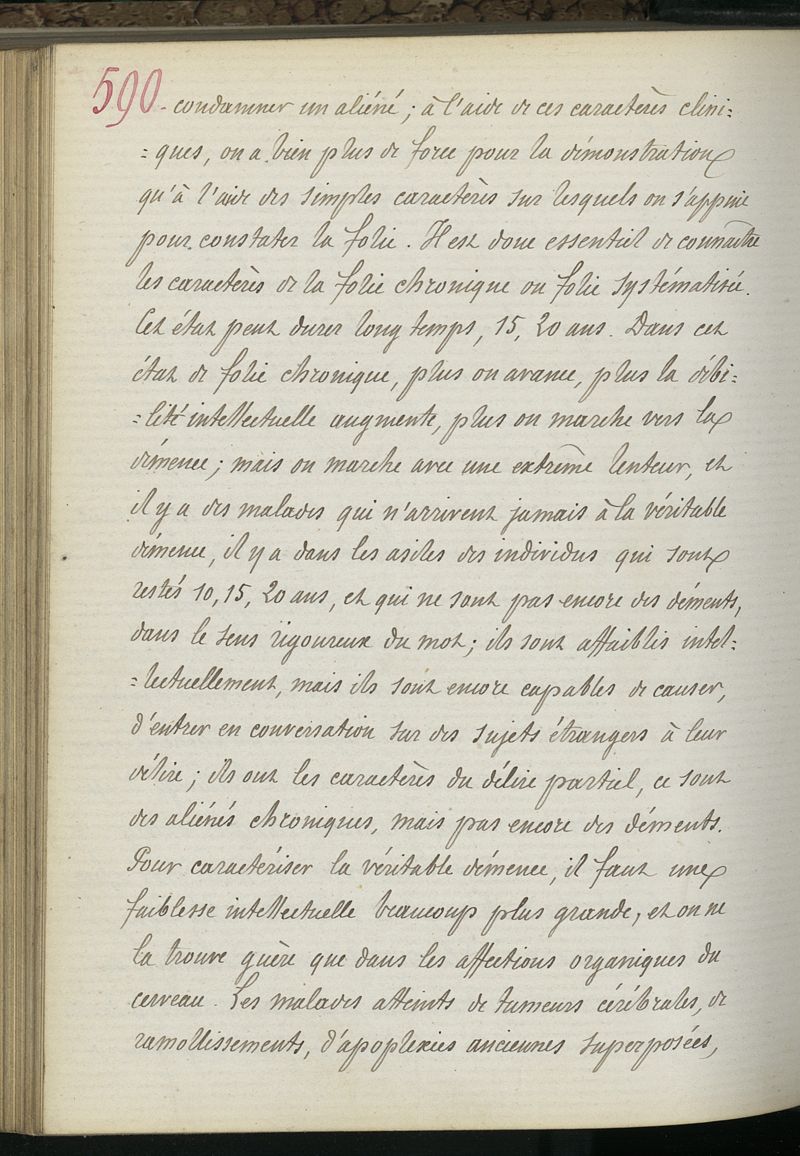 590. condamner un aliéné ; à l'aide de ces caractères clini=
=ques, on a bien plus de force pour la démonstration
qu'à l'aide des simples caractères sur lesquels on s'appuie
pour constater la folie. Il est donc essentiel de connaître
les caractères de la folie chronique ou folie systématisée.
Cet état peut durer long temps, 15, 20 ans. Dans cet
état de folie chronique, plus on avance, plus la débi=
=lité intellectuelle augmente, plus on marche vers la
démence ; mais on marche avec une extrême lenteur, et
il y a des malades qui n'arrivent jamais à la véritable
démence, il y a dans les asiles des individus qui sont
restés 10, 15, 20 ans, et qui ne sont pas encore des déments,
dans le sens rigoureux du mot ; ils sont affaiblis intel=
=lectuellement, mais ils sont encore capables de causer,
d'entrer en conversation sur des sujets étrangers à leur
délire ; ils ont les caractères du délire partiel, ce sont
des aliénés chroniques, mais pas encore des déments.
Pour caractériser la véritable démence, il faut une
faiblesse intellectuelle beaucoup plus grande, et on ne
la trouve guère que dans les affections organiques du
cerveau. Les malades atteints de tumeurs cérébrales, de
ramollissements, d'apoplexies anciennes superposées,